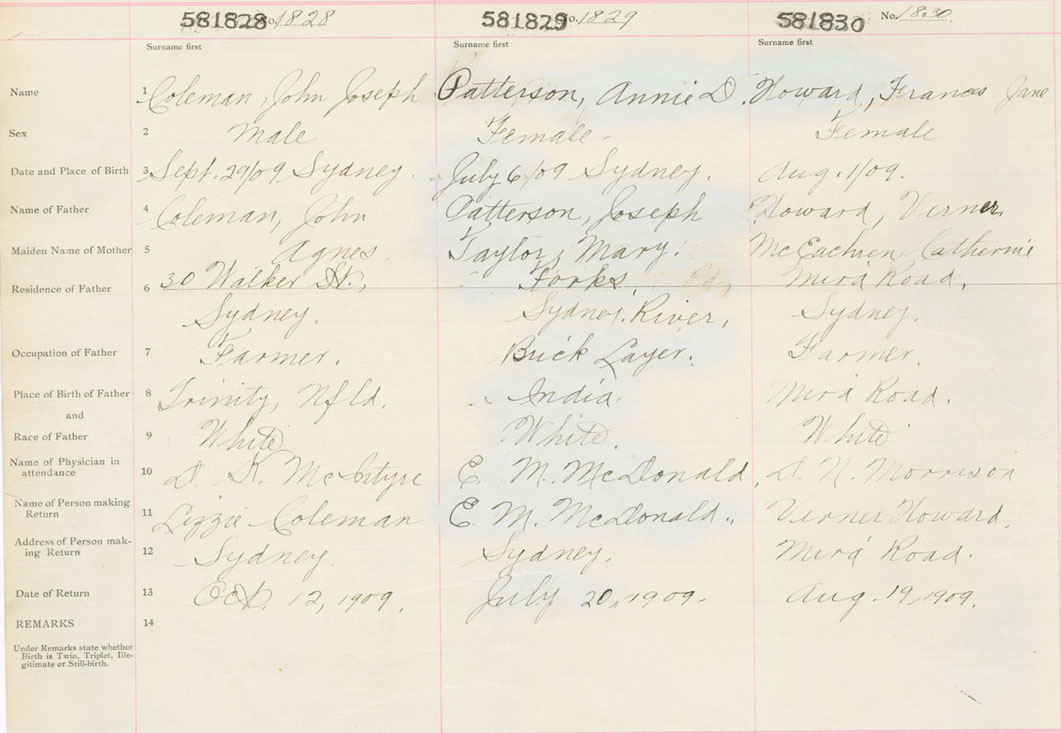 581828 No. 1828 581829 No. 1829 581830 No. 1830
Surname first Surname first Surname first
Name 1 Coleman, John Joseph Patterson, Annie D. Howard, Frances Jane
Sex 2 Male Female Female
Date and Place of Birth 3 Sept. 29/09 Sydney. July 6/09 Sydney. Aug. 1/09.
Name of Father 4 Coleman, John Patterson, Joseph Howard, Verner
Maiden Name of Mother 5 Agnes Taylor, Mary. McEachren Catherine
Residence of Father 6 30 Walker St., Forks, Rd, Mira Road,
Sydney. Sydney River, Sydney.
Occupation of Father 7 Farmer. Brick Layer. Farmer.
Place of Birth of Father 8 Trinity, Nfld. India. Mira Road.
and
Race of Father 9 White White. White
Name of Physician in
attendance 10 D. K. McIntyre E. M. McDonald, D. N. Morrison
Name of Person making
Return 11 Lizzie Coleman E. M. McDonald., Verner Howard,
Address of Person mak-
ing Return 12 Sydney. Sydney. Mira Road.
Date of Return 13 Oct. 12, 1909. July 20, 1909. Aug. 19, 1909.
REMARKS 14
Under Remarks state whether
Birth is Twin, Triplet, Ille-
gitimate or Still-birth.